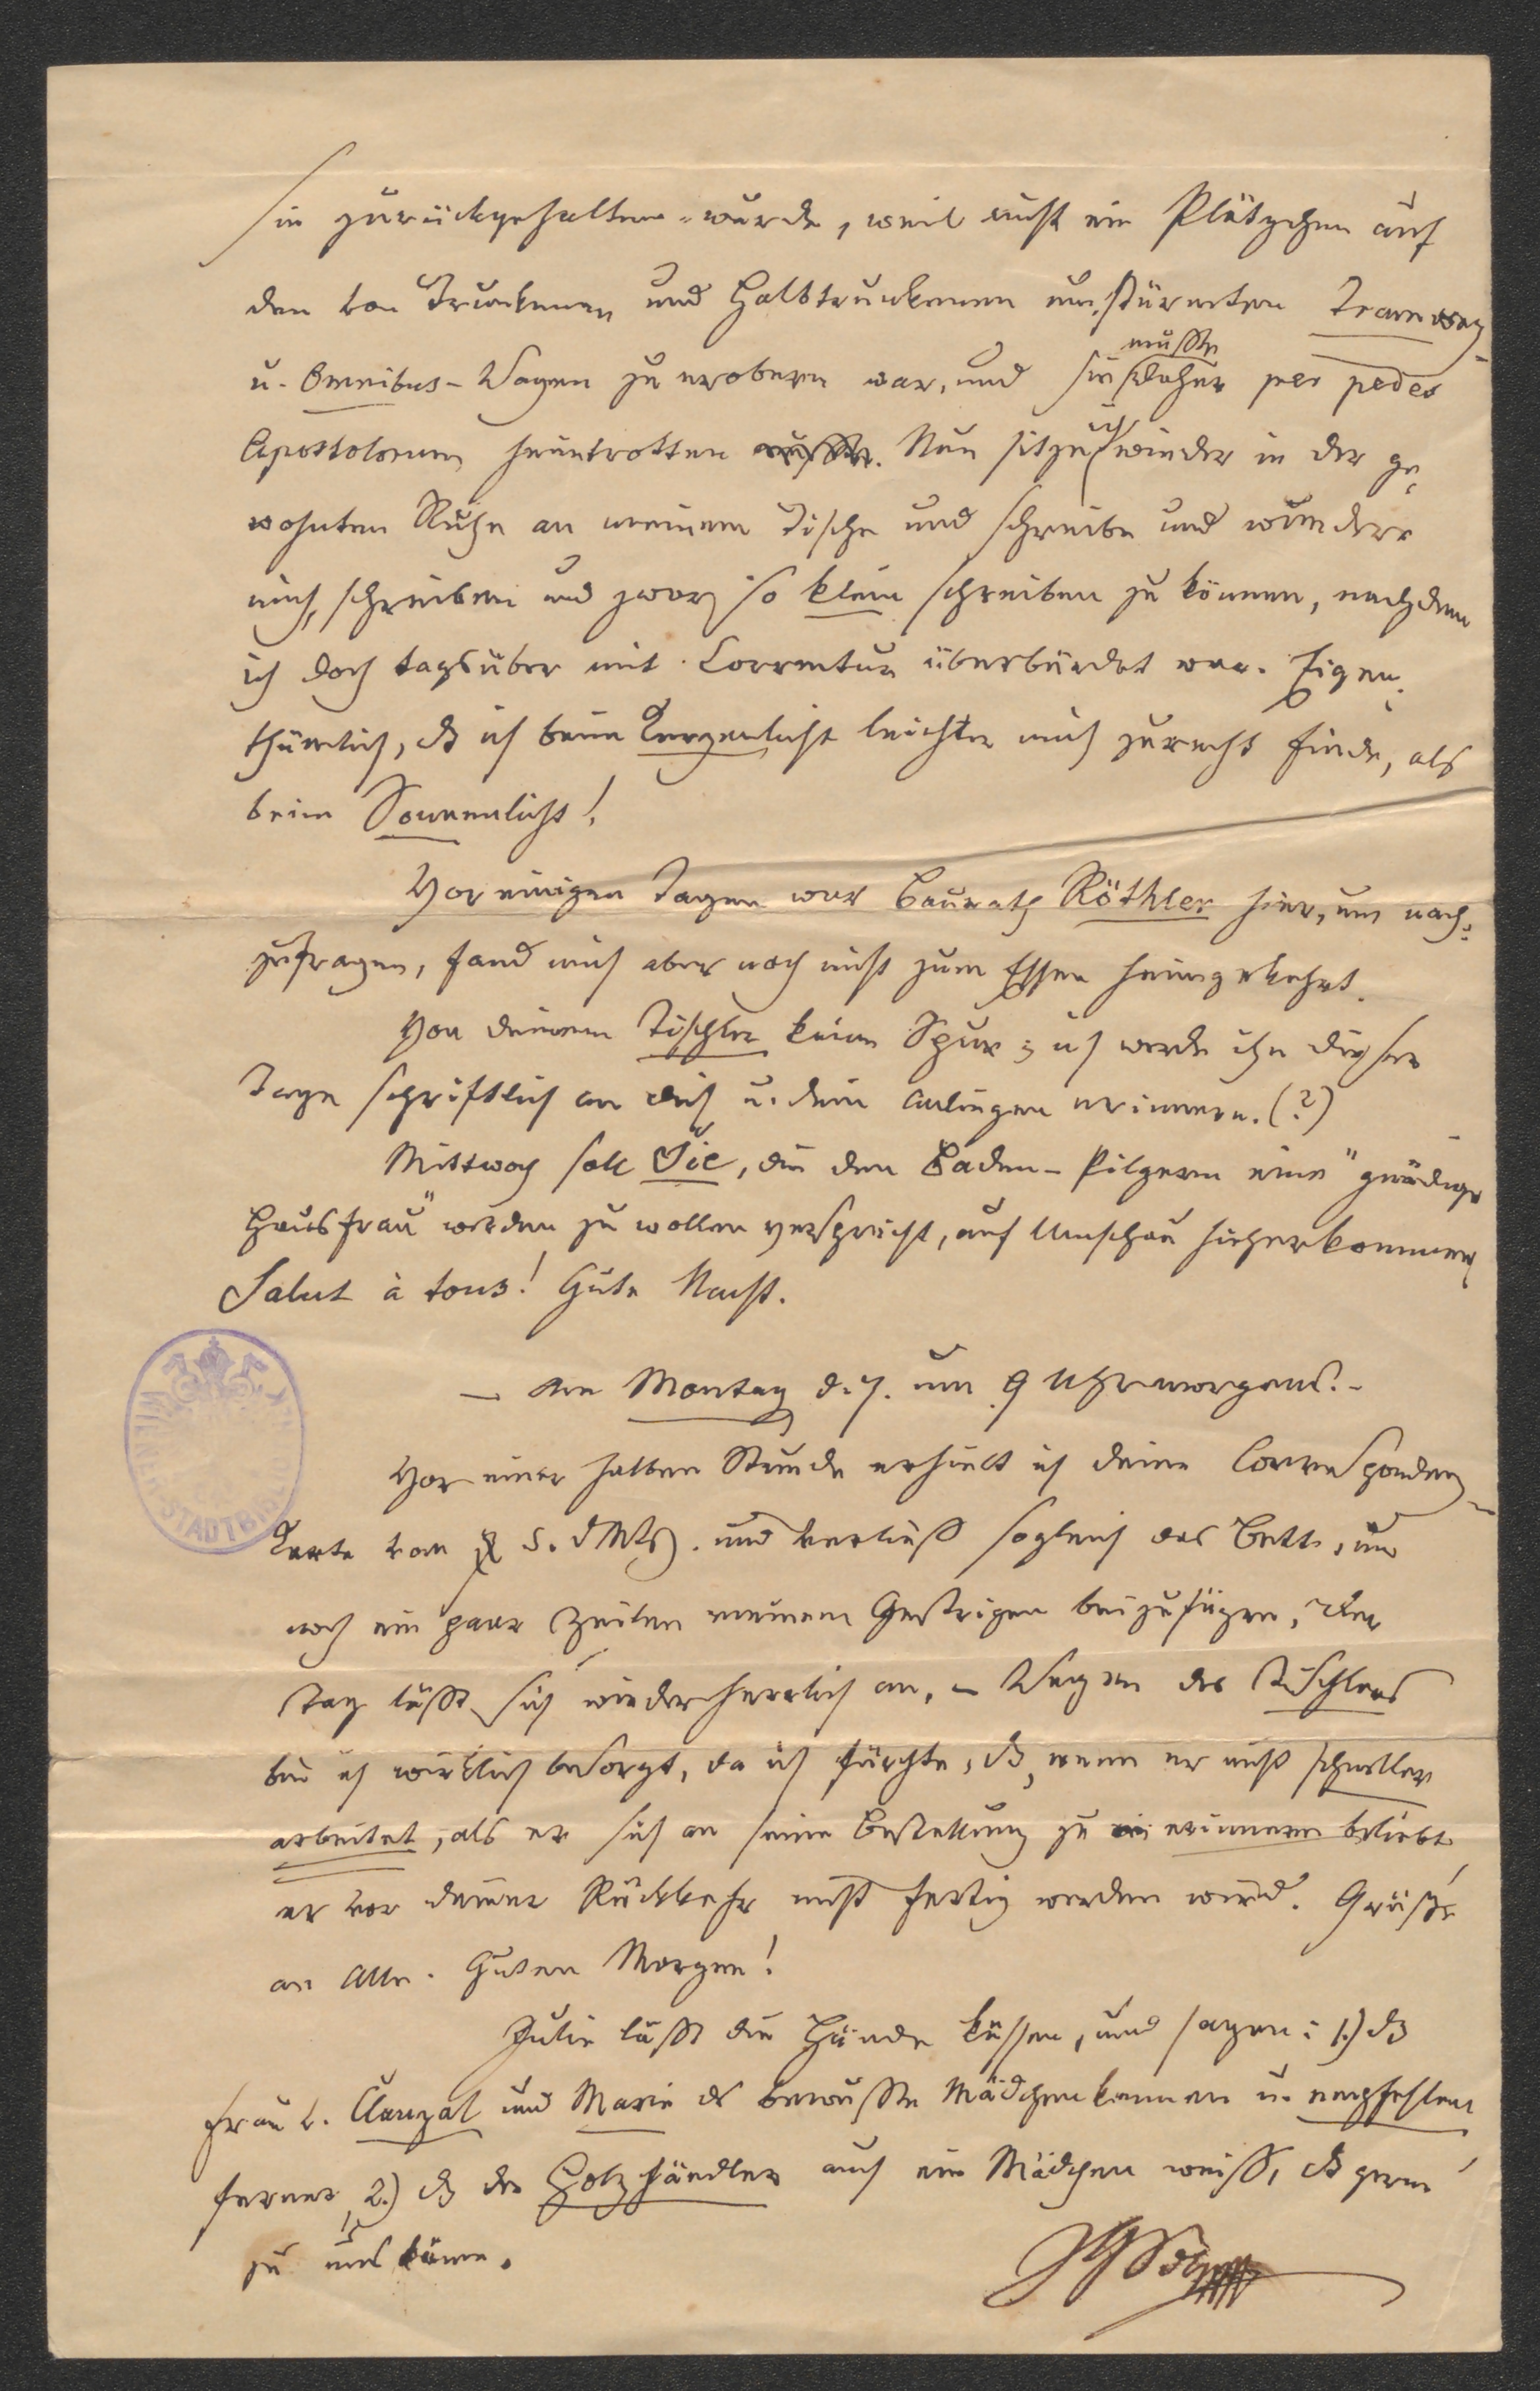 sie zurückgehalten wurde, weil nicht ein Plätzchen auf
den von Trunkenen und Halbtrunkenen umstürmten Tramway-
u. Omnibus-Wagen zu erobern war, und sie daher musste per pedes
Apostolorum heimtrotten. Nun sitze ich wieder in der ge-
wohnten Ruhe an meinem Tische und schreibe und wundere
mich, schreiben und zwar so klein schreiben zu können, nachdem
ich doch tagsüber mit Correctur überbürdet war. Eigen-
thümlich, dß ich beim Kerzenlicht leichter mich zurecht finde, als
beim Sonnenlicht!
Vor einigen Tagen war Baurath Röthler hier, um nach-
zufragen, fand mich aber noch nicht zum Essen heimgekehrt.
Von deinem Tischler keine Spur; ich werde ihn dieser
Tage schriftlich an dich u. dein Anliegen erinnern. (?)
Mittwoch soll Die, die den Baden-Pilgern eine "gnädige
Hausfrau" werden zu wollen verspricht, auf Umschau hieherkommen
Salut à tous! Gute Nacht.
— Am Montag d. 7. um 9 Uhr morgens. -
Vor einer halben Stunde erhielt ich deine Correspondenz-
Karte vom 5. d Mts. und verließ sogleich das Bett, um
noch ein paar Zeilen meinem Gestrigen beizufügen. Der
Tag läßt sich wieder herrlich an. – Wegen des Tischlers
bin ich wirklich besorgt, da ich fürchte, dß, wenn er nicht schneller
arbeitet, als er sich an seine Bestellung zu erinnern beliebt
er vor deiner Rückkehr nicht fertig werden wird. Grüße
an Alle. Guten Morgen!
Julie läßt die Hände küssen, und sagen: 1.) dß
Frau v. Clanzal und Marie ds bewußte Mädchen kennen u. empfehlen
ferner, 2.) dß der Holzhändler auch ein Mädchen weiß, ds gerne
zu uns käme.
WIEN
STADTBIBL